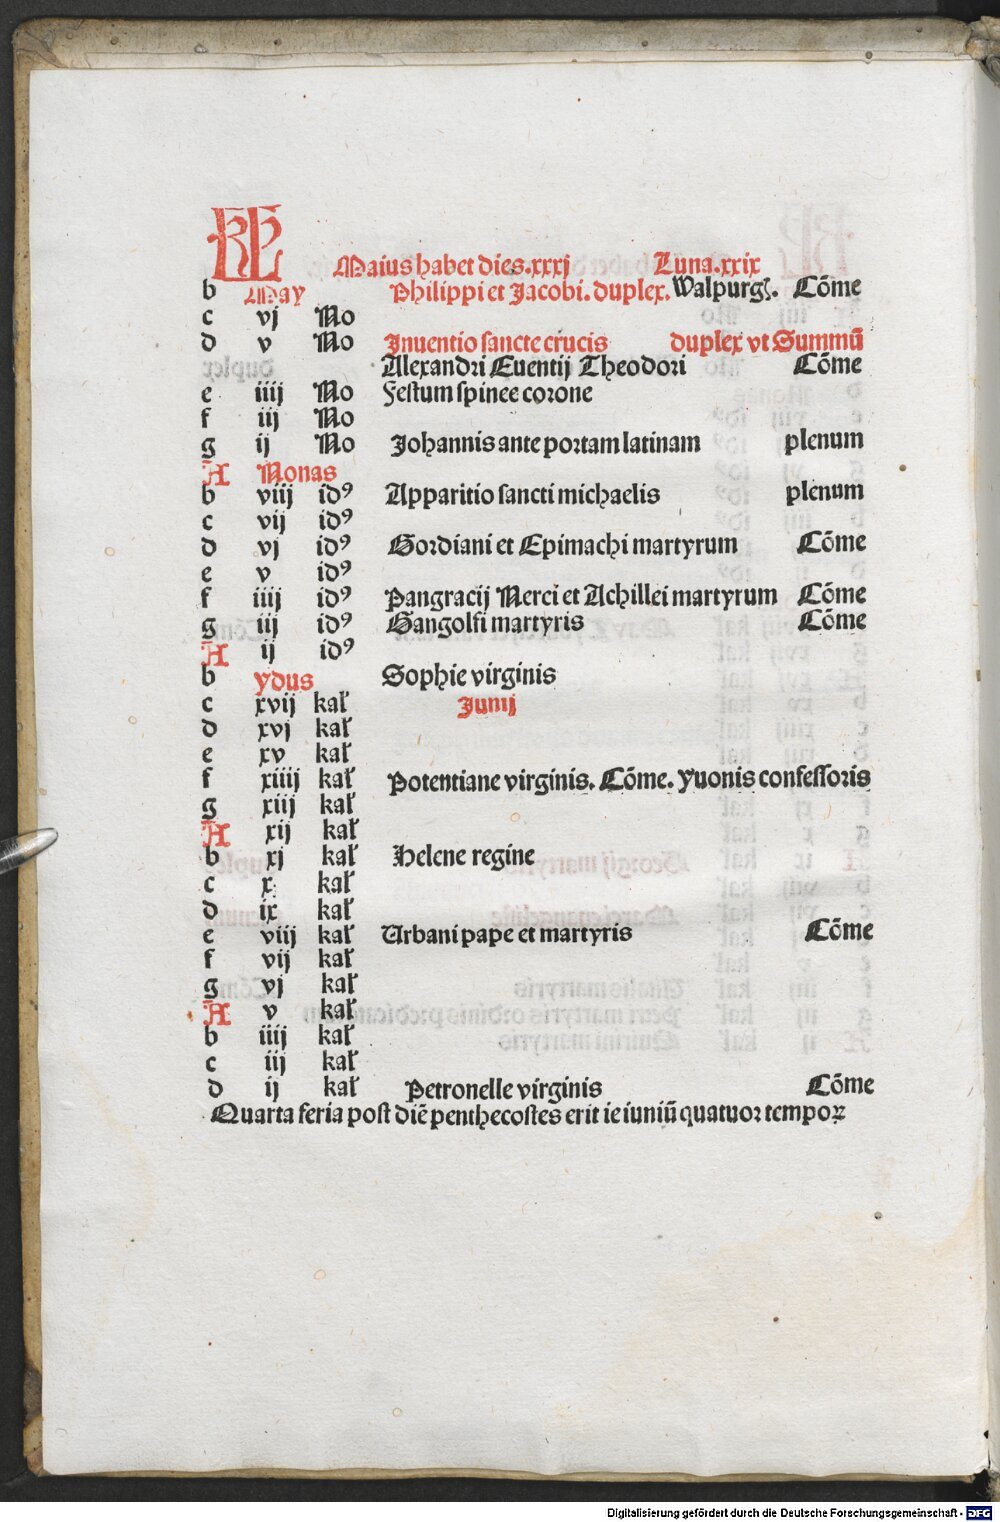 KL Maius habet dies.xxxj Luna.xxix
b May Philippi et Jacobi. duplex. Walpurgꝭ. Cōme
c vj No
d v No Inuentio sancte crucis duplex vt Summū
Alexandri Euentij Theodori Cōme
e iiij No Festum spinee corone
f iij No
g ij No Johannis ante portam latinam plenum
A Nonas
b viij idꝰ Apparitio sancti michaelis plenum
c vij idꝰ
d vj idꝰ Gordiani et Epimachi martyrum Cōme
e v idꝰ
f iiij idꝰ Pangracij Nerei et Achillei martyrum Cōme
g iij idꝰ Gangolfi martyris Cōme
A ij idꝰ
b ydus Sophie virginis
c xvij kał Junij
d xvj kał
e xv kał
f xiiij kał Potentiane virginis. Cōme. yuonis confessoris
g xiij kał
A xij kał
b xj kał Helene regine
c x kał
d ix kał
e viij kał Urbani pape et martyris Cōme
f vij kał
g vj kał
A v kał
b iiij kał
c iij kał
d ij kał Petronelle virginis Cōme
Quarta feria post diē penthecostes erit ie iuniū quatuor tempoꝝ
Digitalisierung gefördert durch die Deutsche Forschungsgemeinschaft - DFG